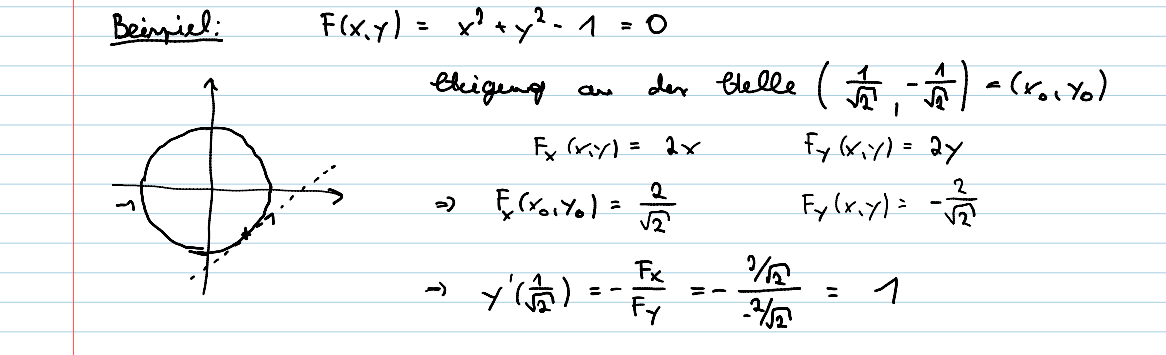 Beispiel: F(x,y) = x² + y² - 1 = 0
Steigung an der Stelle (1/√2, -1/√2) = (x₀, y₀)
Fₓ(x,y) = 2x F_y(x,y) = 2y
⇒ Fₓ(x₀,y₀) = 2/√2 F_y(x,y) = -2/√2
-1 1
→ y'(1/√2) = - Fₓ/F_y = - (2/√2)/(-2/√2) = 1